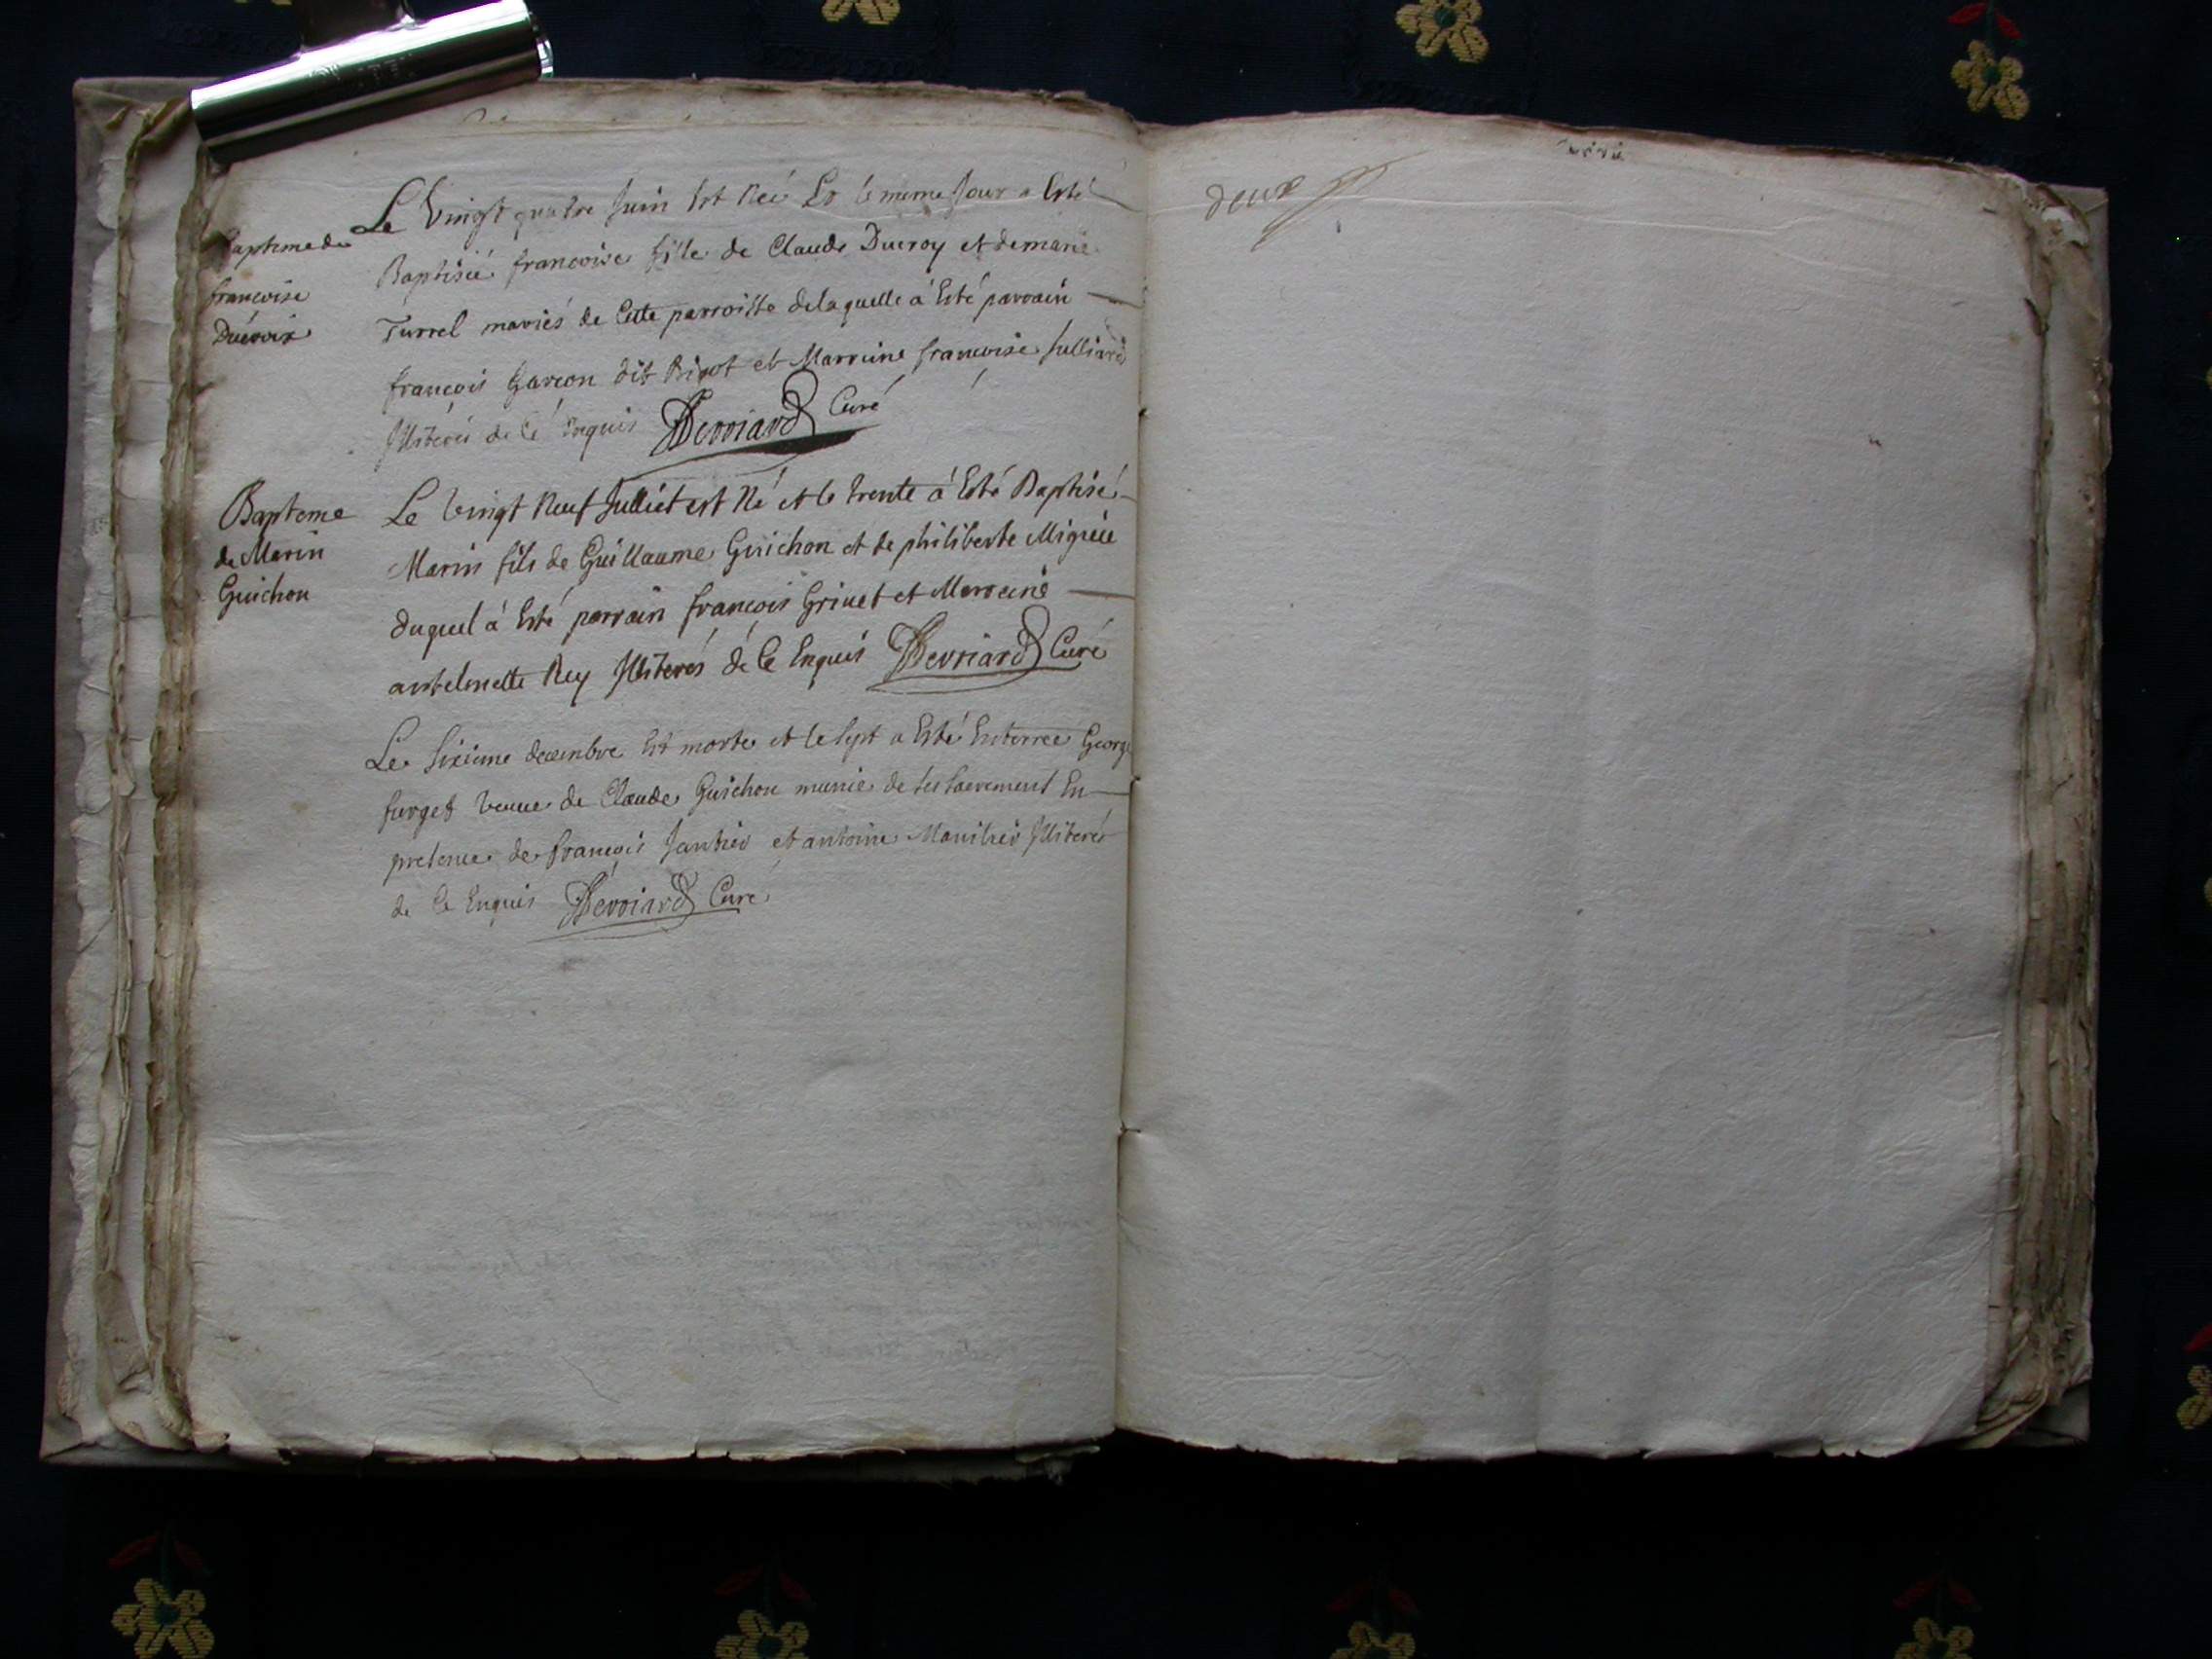 Baptemede
francoise
Ducroix
Le Vingt quatre Juin Est Neé Et le meme Jour a Esté
Baptiseé francoise fille de Claude Ducroy et demarie
Turrel mariés de Cette parroisse delaquelle á Esté parrain
françois Garçon dit Bigot et Marreine francoise Julliard
Illiterés de cé Enquis Derriard Curé
Bapteme
de Marin
Guichon
Le Vingt Neuf Julliet est Né et le trente á Esté Baptisé
Marin fils de Guillaume Guichon et de philiberte Migniée
duquel á Esté parrain françois Grinet et Marreine
antelmette Rey Illiterés dé Ce Enquis Derriard Curé
Le Sixieme decembre Est morte et le Sept a Esté Enterreé George
furget Veuve de Claude Guichon munie de ses Sacrement En
presence de françois Jantier et antoine Monitier Illiterés
de Ce Enquis Derriard Curé
deux